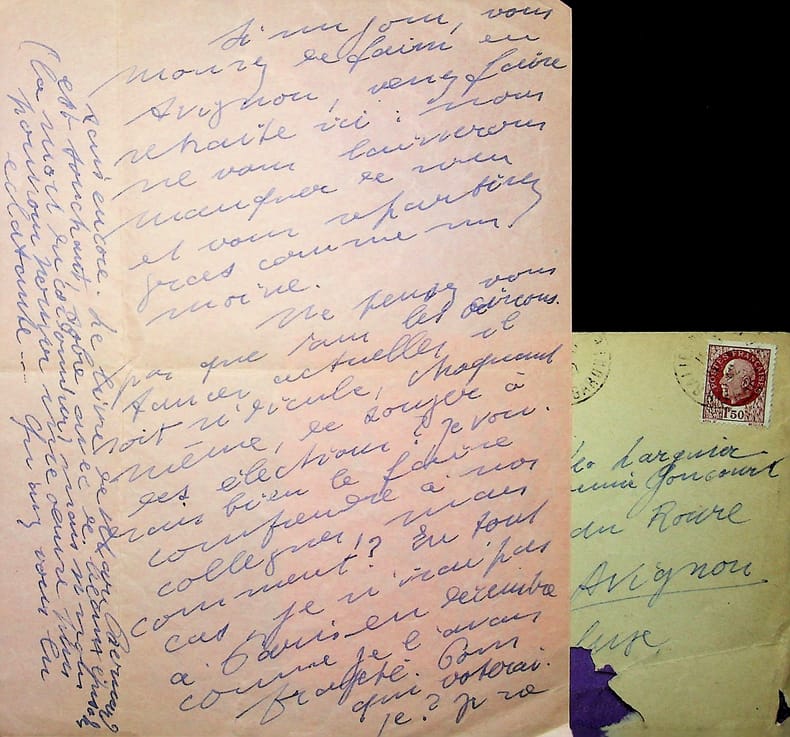 Si un jour, vous
mourez de faim en
Avignon, venez faire
retraite ici : nous
ne vous laisserons
manquer de rien
et vous repartirez
gras comme un
moine.
Ne pensez vous
pas que dans les circons-
tances actuelles il
soit ridicule, choquant
même, de songer à
des élections ? Je vou-
drais bien le faire
comprendre à nos
collègues, mais
comment ? En tout
cas, je n'irai pas
à Paris en décembre
comme je l'avais
projeté. Pour
qui voterai-
je ? Je ne
sais encore. Le livre de
est touchant, sobre avec de beaux
(la mort du
pourrions nous une œuvre plus
éclatante... Qu'en
POSTES FRANÇAISES
1F50
Léo Larguier
Goncourt
du Roure
Avignon